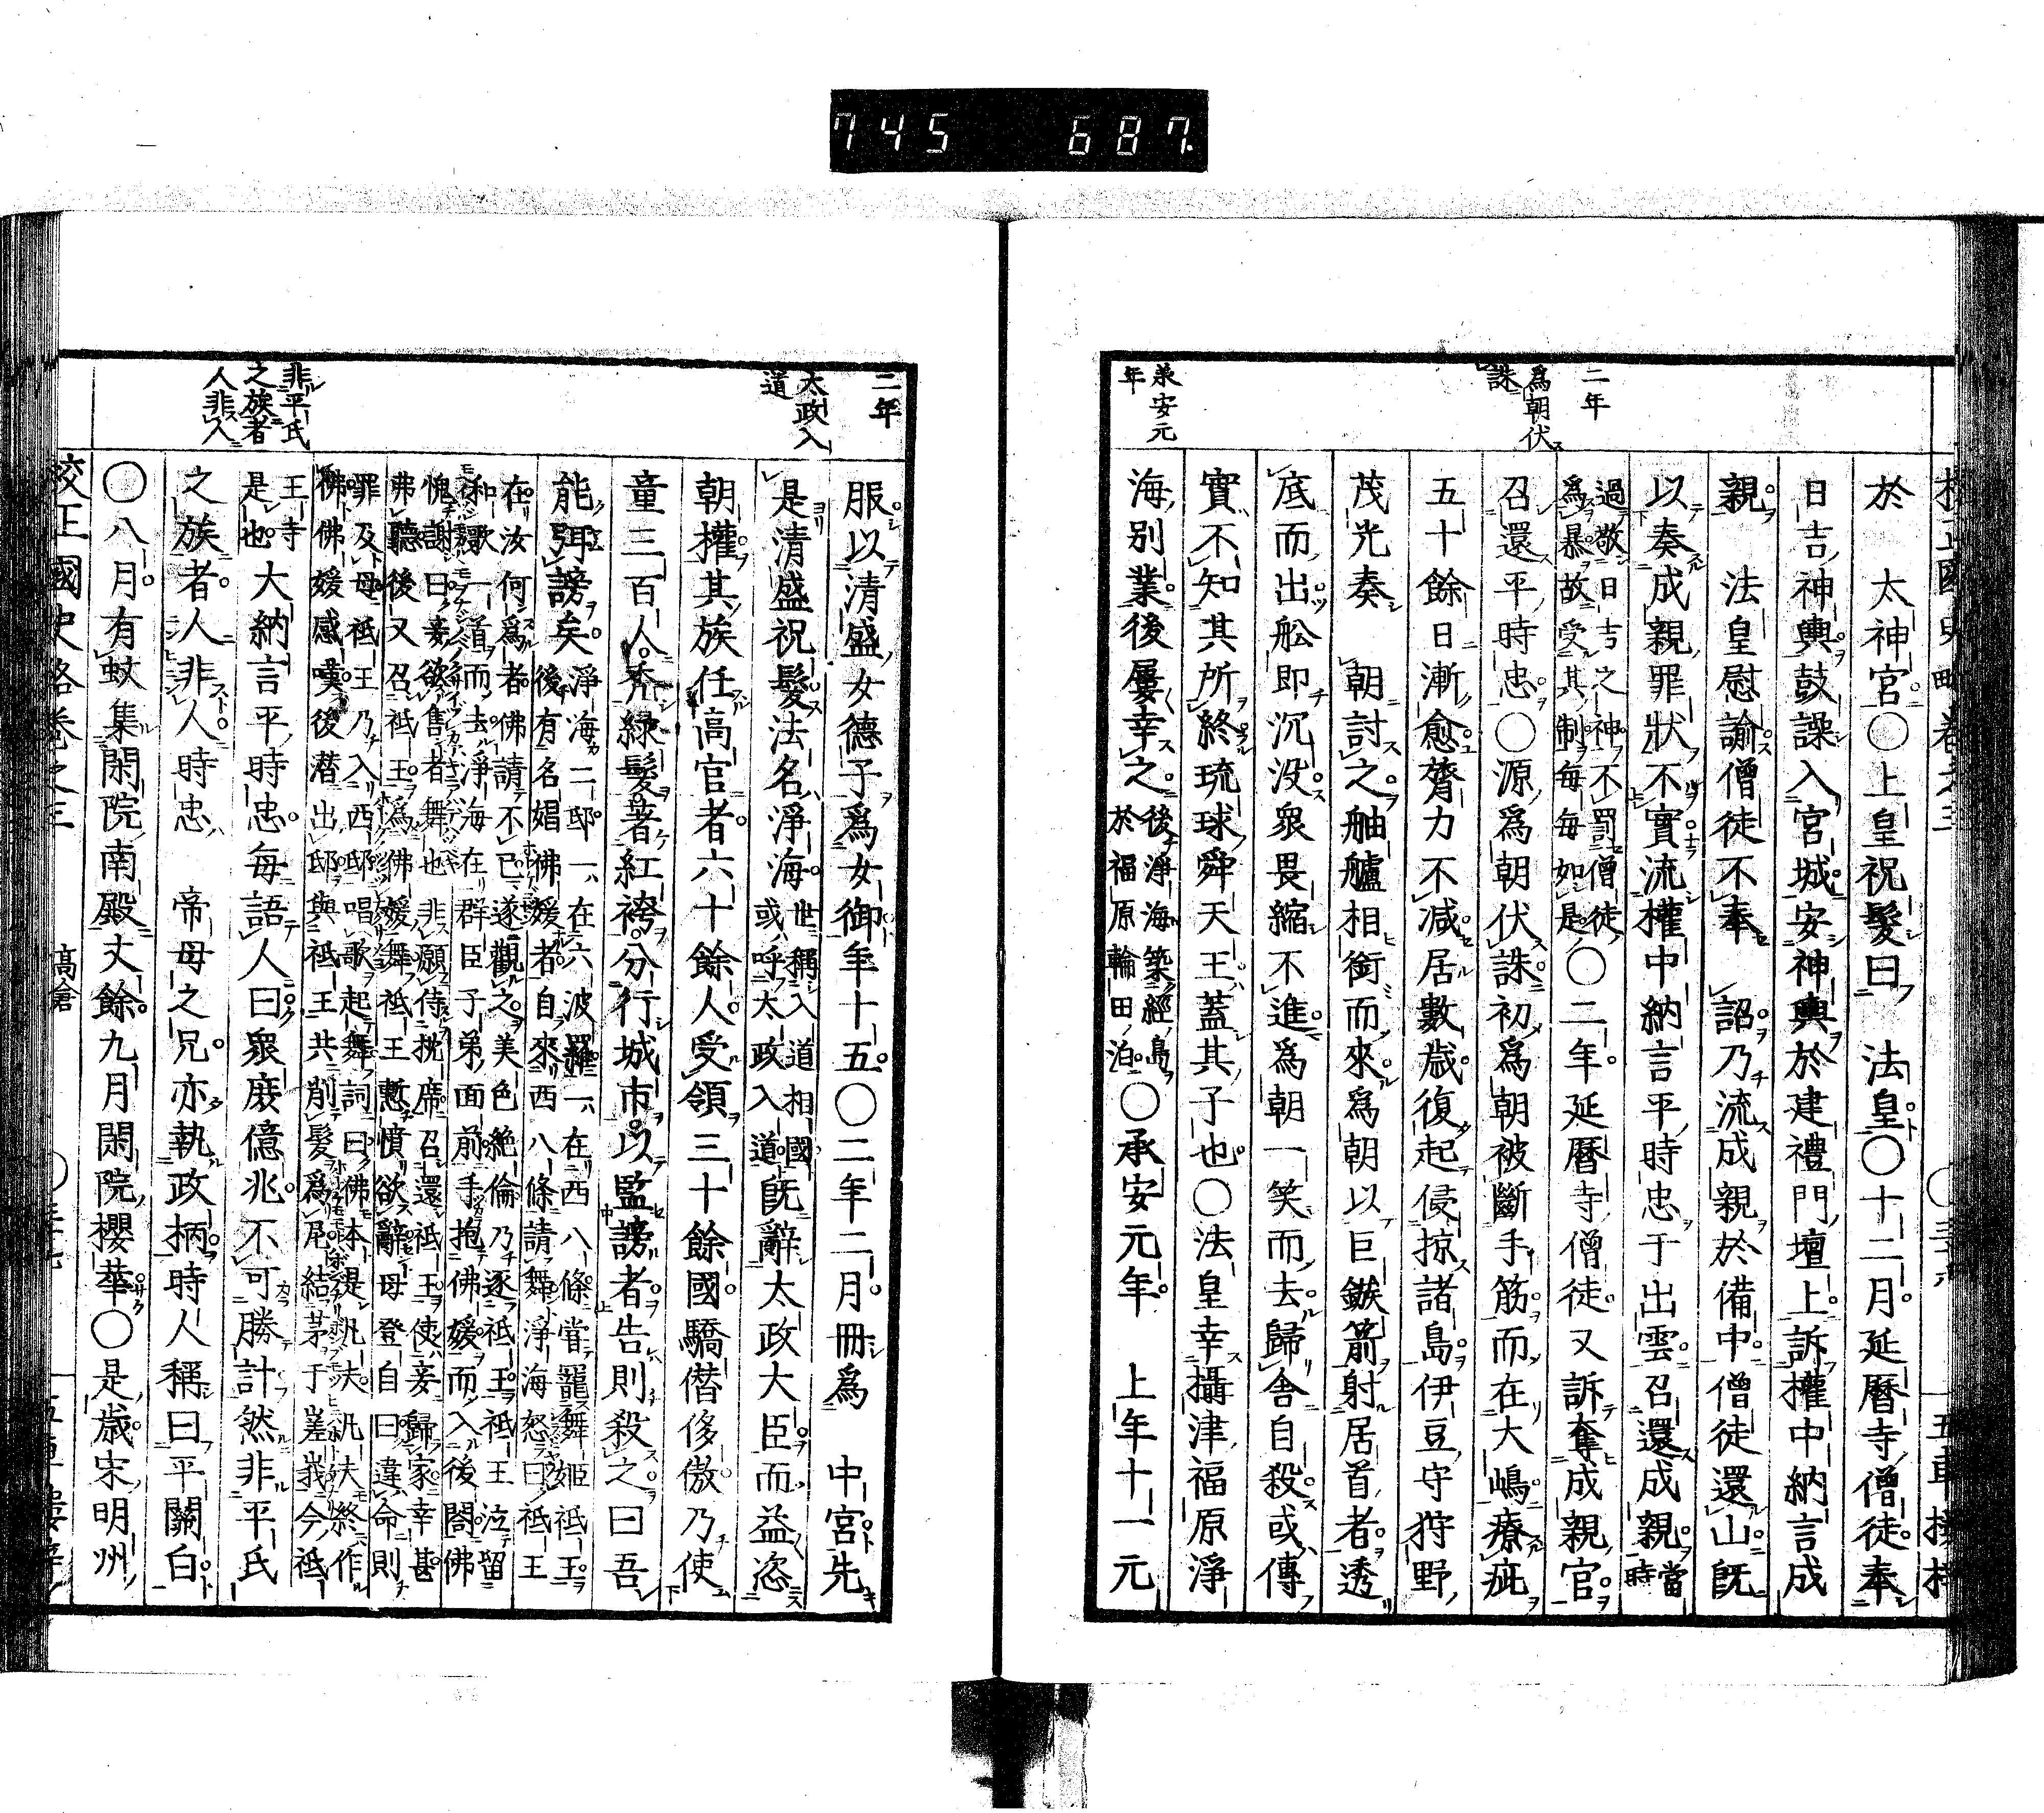 745 687.
二年
爲朝伏
誅
承安元
年
於　太神宮〇上皇祝髮曰　法皇〇十二月延暦寺僧徒奉
日吉神輿鼓譟入宮城安神輿於建禮門壇上訴權中納言成
親　法皇慰諭僧徒不奉　詔乃流成親於備中僧徒還山既
以奏成親罪狀不實流權中納言平時忠于出雲召還成親當時
過敬日吉之神不罰僧徒
爲暴故受其制每每如是〇二年延暦寺僧徒又訴奪成親官
召還平時忠〇源爲朝伏誅初爲朝被斷手筋而在大嶋療疵
五十餘日漸愈膂力不减居數歳復起侵掠諸島伊豆守狩野
茂光奏　朝討之舳艫相銜而來爲朝以巨鏃箭射居首者透
底而出舩即沉没衆畏縮不進爲朝一笑而去歸舍自殺或傳
實不知其所終琉球舜天王蓋其子也〇法皇幸攝津福原淨
海別業後屢幸之後淨海築經島
於福原輪田泊〇承安元年　上年十一元
二年
太政入
道
非平氏
之族者
人非人
服以清盛女德子爲女御年十五〇二年二月冊爲　中宮先
是清盛祝髮法名淨海世稱入道相國
或呼太政入道既辭太政大臣而益恣
朝權其族任高官者六十餘人受領三十餘國驕僭侈傲乃使
童三百人秃綠髮著紅袴分行城市以監謗者告則殺之曰吾
能弭謗矣淨海二邸一在六波羅一在西八條嘗寵舞姬祇王
後有名娼佛媛者自來西八條請舞淨海怒曰祇王
在汝何爲者佛請不已遂觀之美色絶倫乃逐祇王祇王泣留
和歌一首而去淨海在群臣子弟面前手抱佛媛而入後閤佛
愧謝曰妾欲售者舞也非願侍枕席召還祇王使妾歸家幸甚
弗聽後又召祇王爲佛媛舞祇王慙憤欲辭母登自曰違命則
罪及母祇王乃入西邸唱歌起舞詞曰佛本是凡夫凡夫終作
佛佛媛感嘆後潜出邸與祇王共削髮爲尼結茅于嵳峩今祇
王寺
是也大納言平時忠每語人曰衆庶億兆不可勝計然非平氏
之族者人非人時忠　帝母之兄亦執政柄時人稱曰平關白
〇八月有蚊集閑院南殿丈餘九月閑院櫻華〇是歳宋明州
校正國史略卷之三　高倉